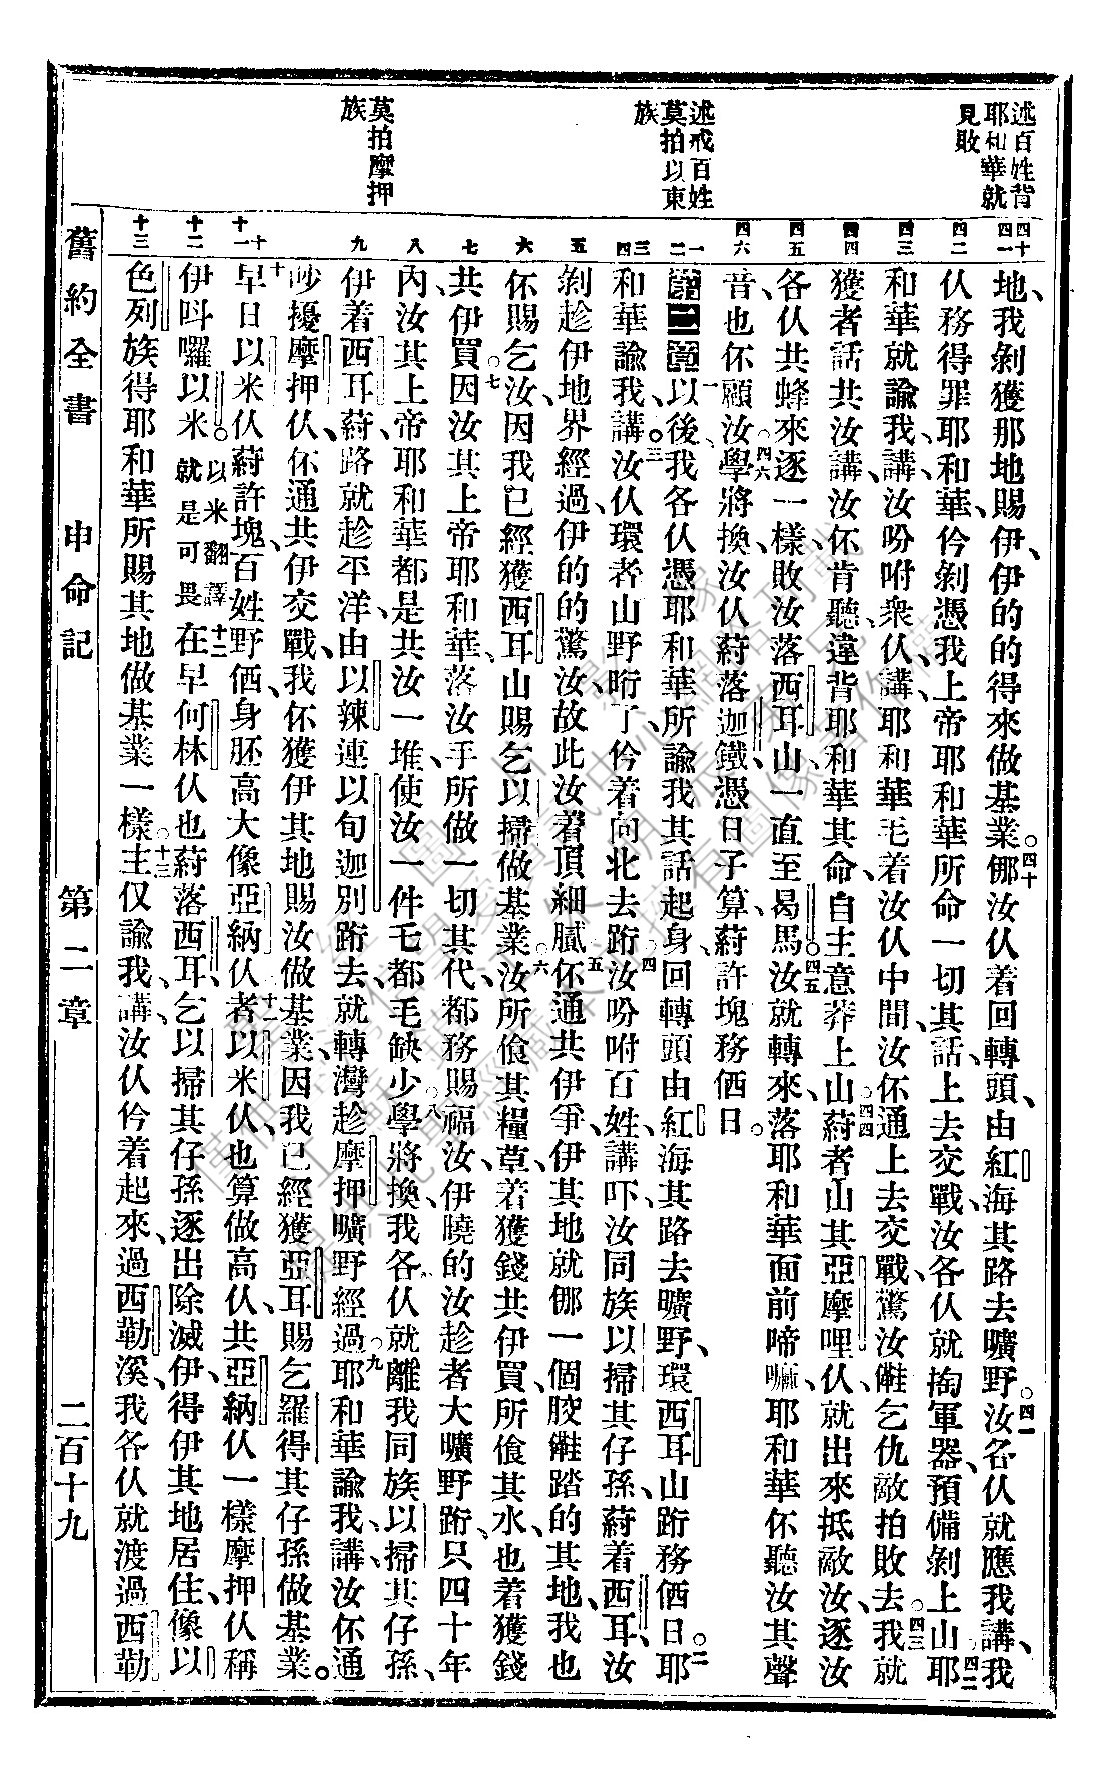 述百姓背
耶和華就
見敗
述戒百姓
莫拍以東
族
莫拍摩押
族
四十
四一
四二
四三
四四
四五
四六
一
二
三
四
五
六
七
八
九
十
十一
十二
十三
地、我剝獲那地賜伊、伊的的得來做基業。四十㑚汝仈着回轉頭、由紅海其路去曠野。四一汝各仈就應我講、我
仈務得罪耶和華、仱剝憑我上帝耶和華所命一切其話、上去交戰、汝各仈就掏軍器、預備剝上山。四二耶
和華就諭我、講、汝吩咐衆仈、講、耶和華毛着汝仈中間、汝伓通上去交戰、驚汝𠆧乞仇敵拍敗去。四三我就
獲者話共汝講、汝伓肯聽、違背耶和華其命、自主意莽上山。四四蔚者山其亞摩哩仈、就出來抵敵汝、逐汝
各仈共蜂來逐一樣、敗汝落西耳山一直至曷馬。四五汝就轉來、落耶和華面前啼嘛、耶和華伓聽汝其聲
音、也伓顧汝。四六學將換汝仈蔚落迦鐵、憑日子算、蔚許塊務㑚日。
第二章 一以後、我各仈憑耶和華所諭我其話起身、回轉頭、由紅海其路去曠野、環西耳山跨務㑚日。二耶
和華諭我、講。三汝仈環者山野晍了、仱着向北去跨。四汝吩咐百姓講、吓、汝同族以掃其仔孫、蔚着西耳、汝
剝趁伊地界經過、伊的的驚汝、故此汝着頂細膩。五伓通共伊爭、伊其地就㑚一個胶𠆧踏的其地、我也
伓賜乞汝、因我已經獲西耳山賜乞以掃做基業。六汝所飡其糧草、着獲錢共伊買、所飡其水、也着獲錢
共伊買。七因汝其上帝耶和華、落汝手所做一切其代、都務賜福汝、伊曉的汝趁者大曠野跨、只四十年
內、汝其上帝耶和華都是共汝一堆、使汝一件毛都毛缺少。八學將換我各仈就離我同族以掃其仔孫、
伊着西耳蔚、路就趁平洋、由以辣連以旬迦別跨去、就轉灣趁摩押曠野經過。九耶和華諭我、講、汝伓通
吵擾摩押仈、伓通共伊交戰、我伓獲伊其地賜汝做基業、因我已經獲亞耳賜乞羅得其仔孫做基業。
十早日以米仈蔚許塊、百姓野㑚、身胚高大像亞納仈。十一者以米仈也算做高仈、共亞納仈一樣、摩押仈稱
伊呌囉以米。以米翻譯就是可畏 十二在早何林仈也蔚落西耳、乞以掃其仔孫逐出除滅伊、得伊其地居住、像以
色列族得耶和華所賜其地做基業一樣。十三主仅諭我、講、汝仈仱着起來、過西勒溪、我各仈就渡過西勒
舊約全書 申命記 第二章 二百十九